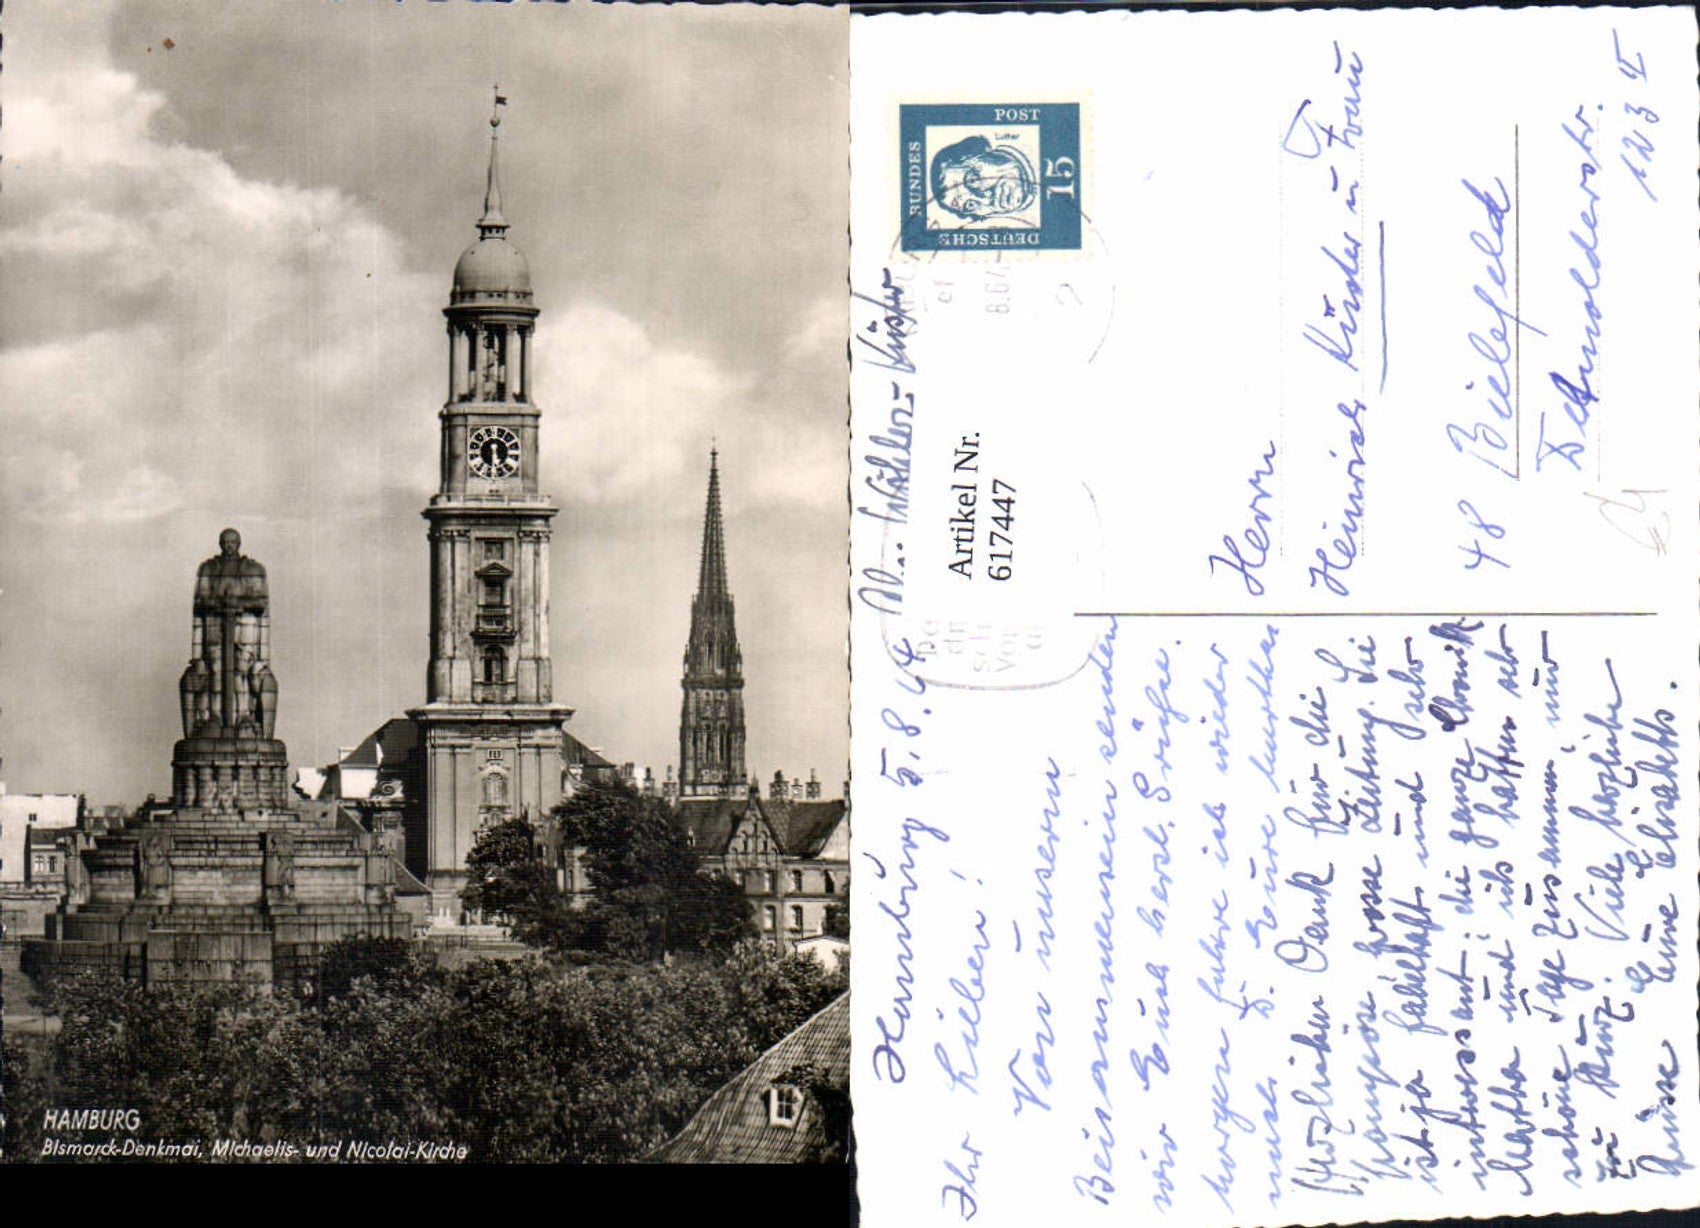 HAMBURG
Bismarck-Denkmal, Michaelis- und Nicolai-Kirche
DEUTSCHE
BUNDES
POST
Luther
15
Artikel Nr.
617447
Herrn
Heinrich Küster u Frau
48 Bielefeld
Detmolderstr.
123 II
Hamburg 5.8.64
Ihr Lieben!
Von unserm
Beisammensein senden
wir Euch herzl. Grüße.
Morgen fahre ich wieder
nach D. Eure Martha
Herzlichen Dank für die
grosse Zeitung. Sie
ist ja fabelhaft und sehr
interessant, die ganze Chronik
Martha und ich hatten sehr
schöne Tage zusammen, nur
zu kurz. Viele herzliche
Grüsse Eure Elisabeth.